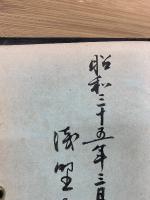 昭和三十五年三月
浅野